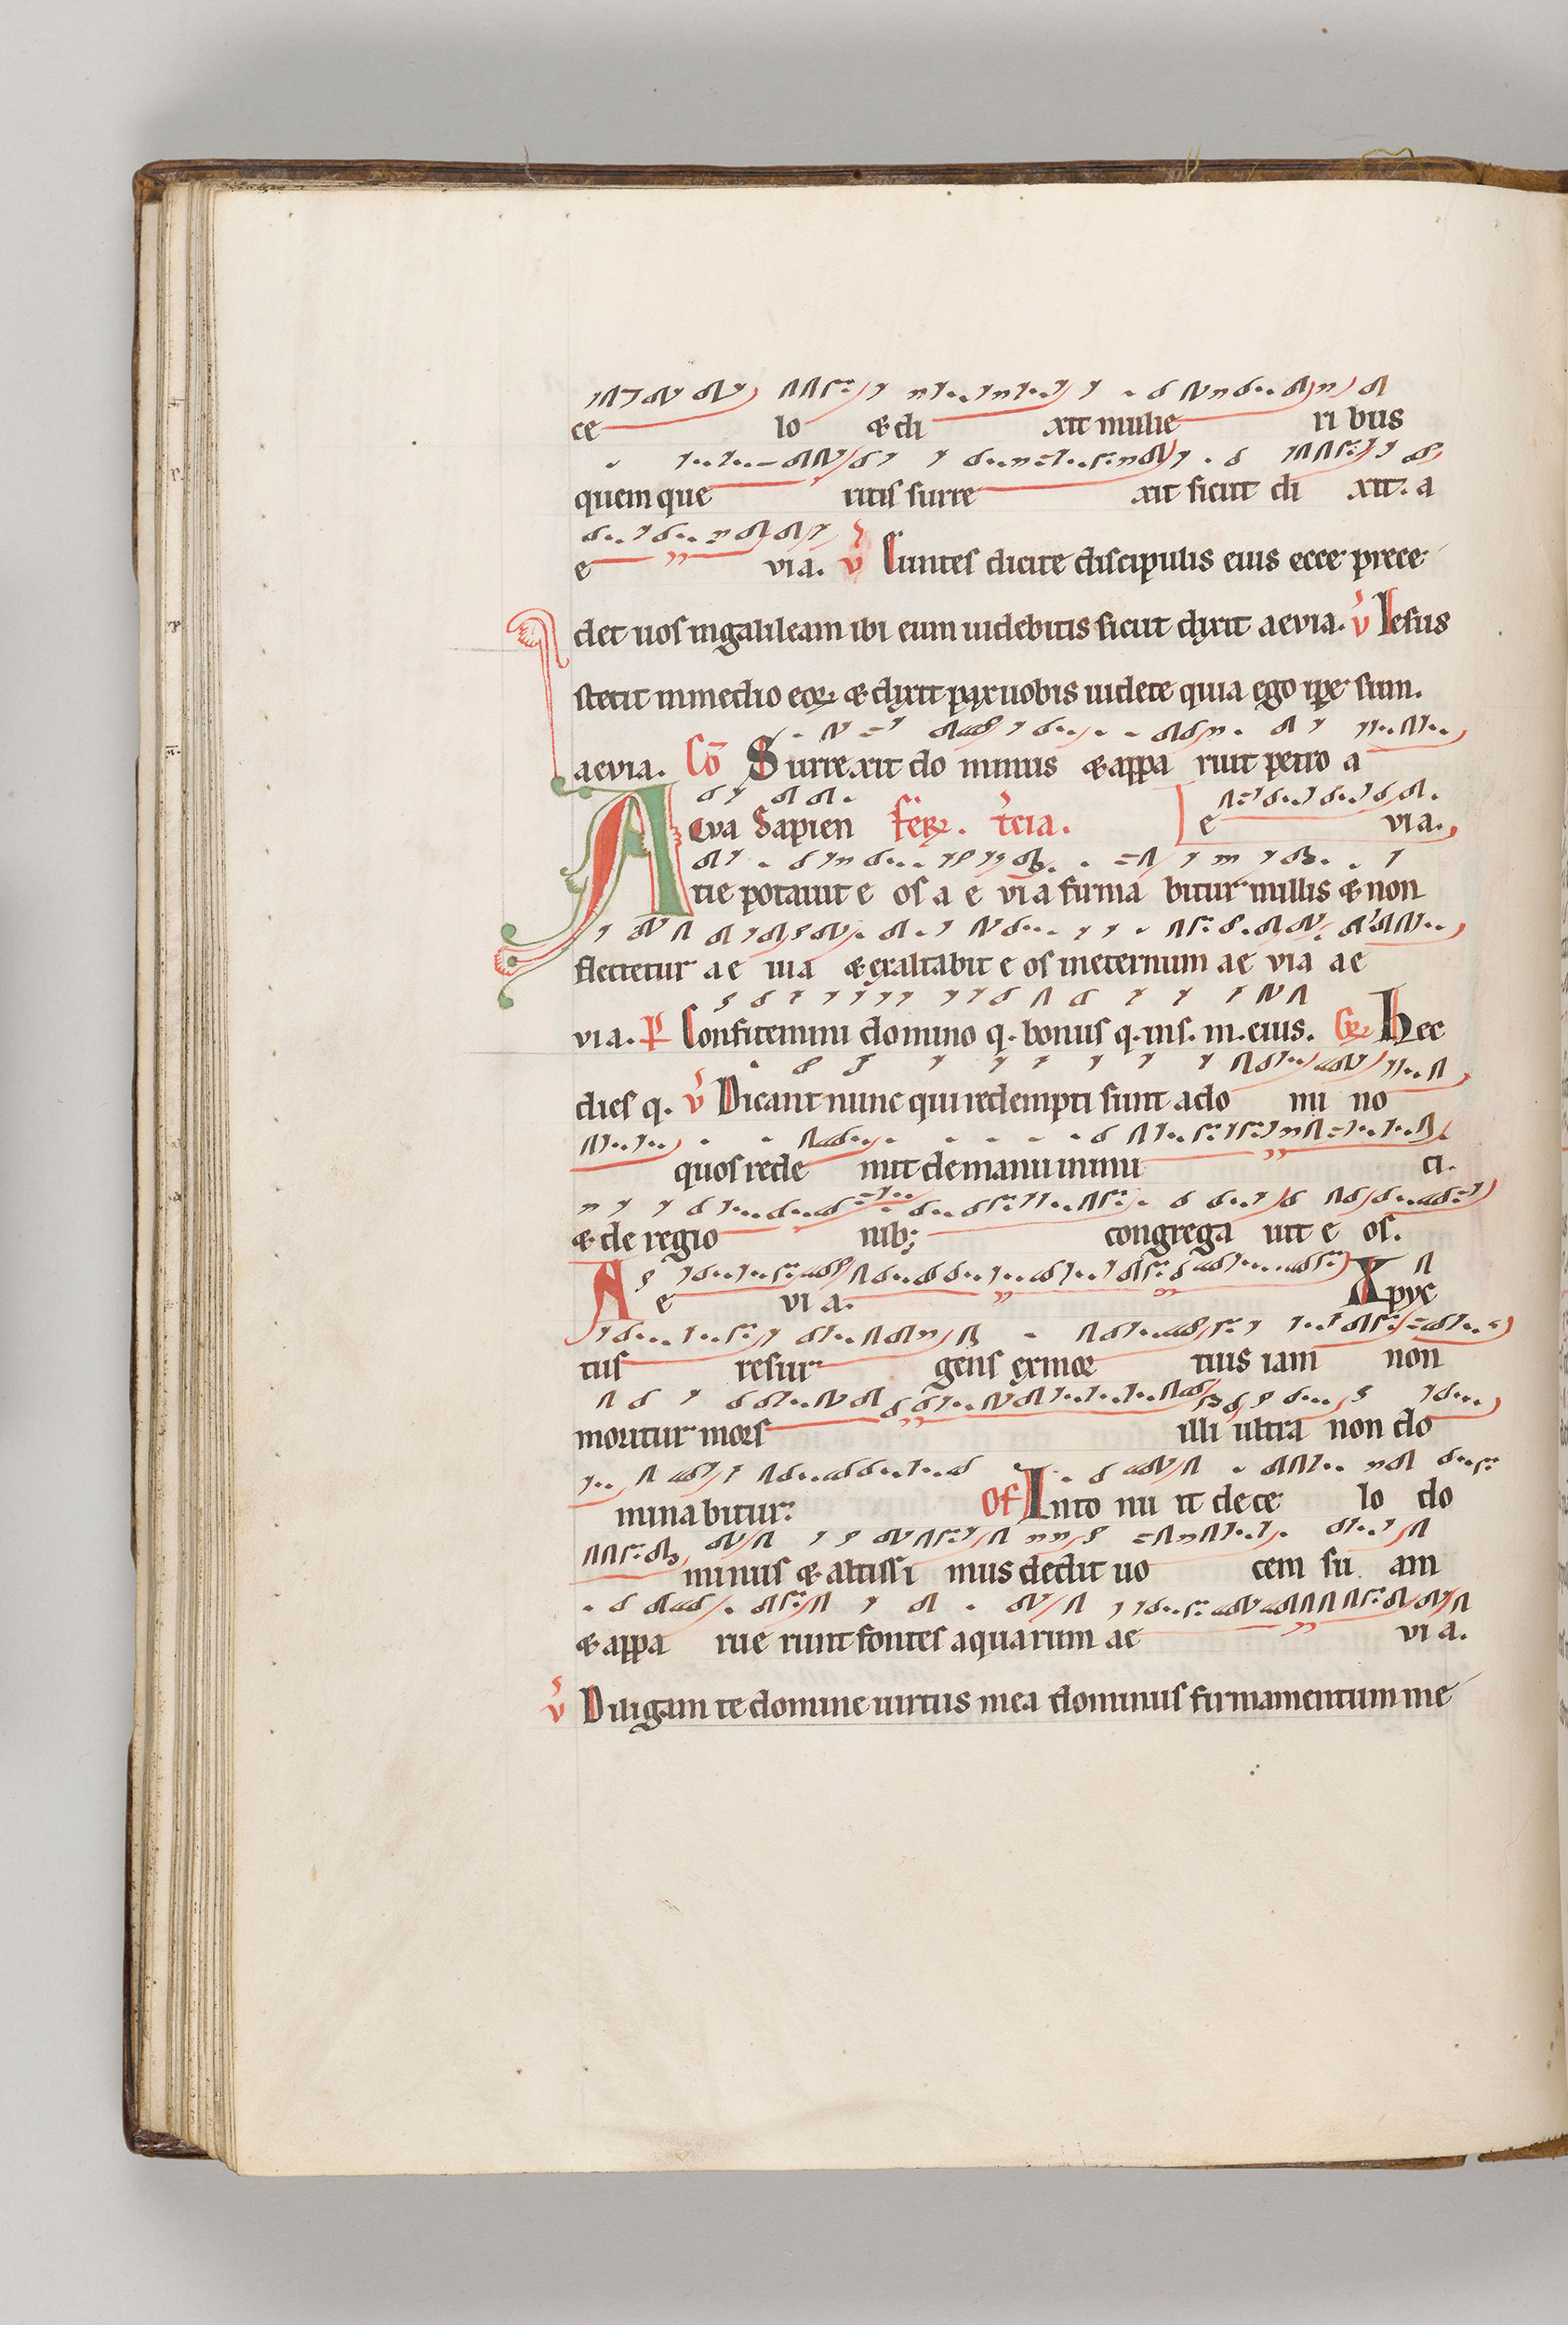 ce lo & di xit mulie ri bus
quem que ritis surre xit sicut di xit. a
e via. v Euntes dicite discipulis eius ecce prece
det uos ingalileam ibi eum uidebitis sicut dixit aevia. v Iesus
stetit inmedio eoꝝ & dixit pax uobis uidete quia ego ipse sum.
aevia. Co Surrexit do minus & appa ruit petro a
Aqua sapien ferꝝ. tcia. e via.
tie potauit e os a e via firma bitur innillis & non
flectetur ae uia & exaltabit e os ineternum ae via ae
via. P Confitemini domino q. bonus q. ins. m. eius. Gꝝ Hec
dies q. v Dicant nunc qui redempti sunt ado mi no
quos rede mit de manu inimi ci.
& de regio nib; congrega uit e os.
A e vi a. Xpyc
tus resur gens exmor tuis iam non
moritur mors illi ultra non do
minabitur: Of Into nu it de ce lo do
minus & altissi mus dedit uo cem su am
& appa rue runt fontes aquarum ae vi a.
v Diligam te domine uirtus mea dominus firmamentum me